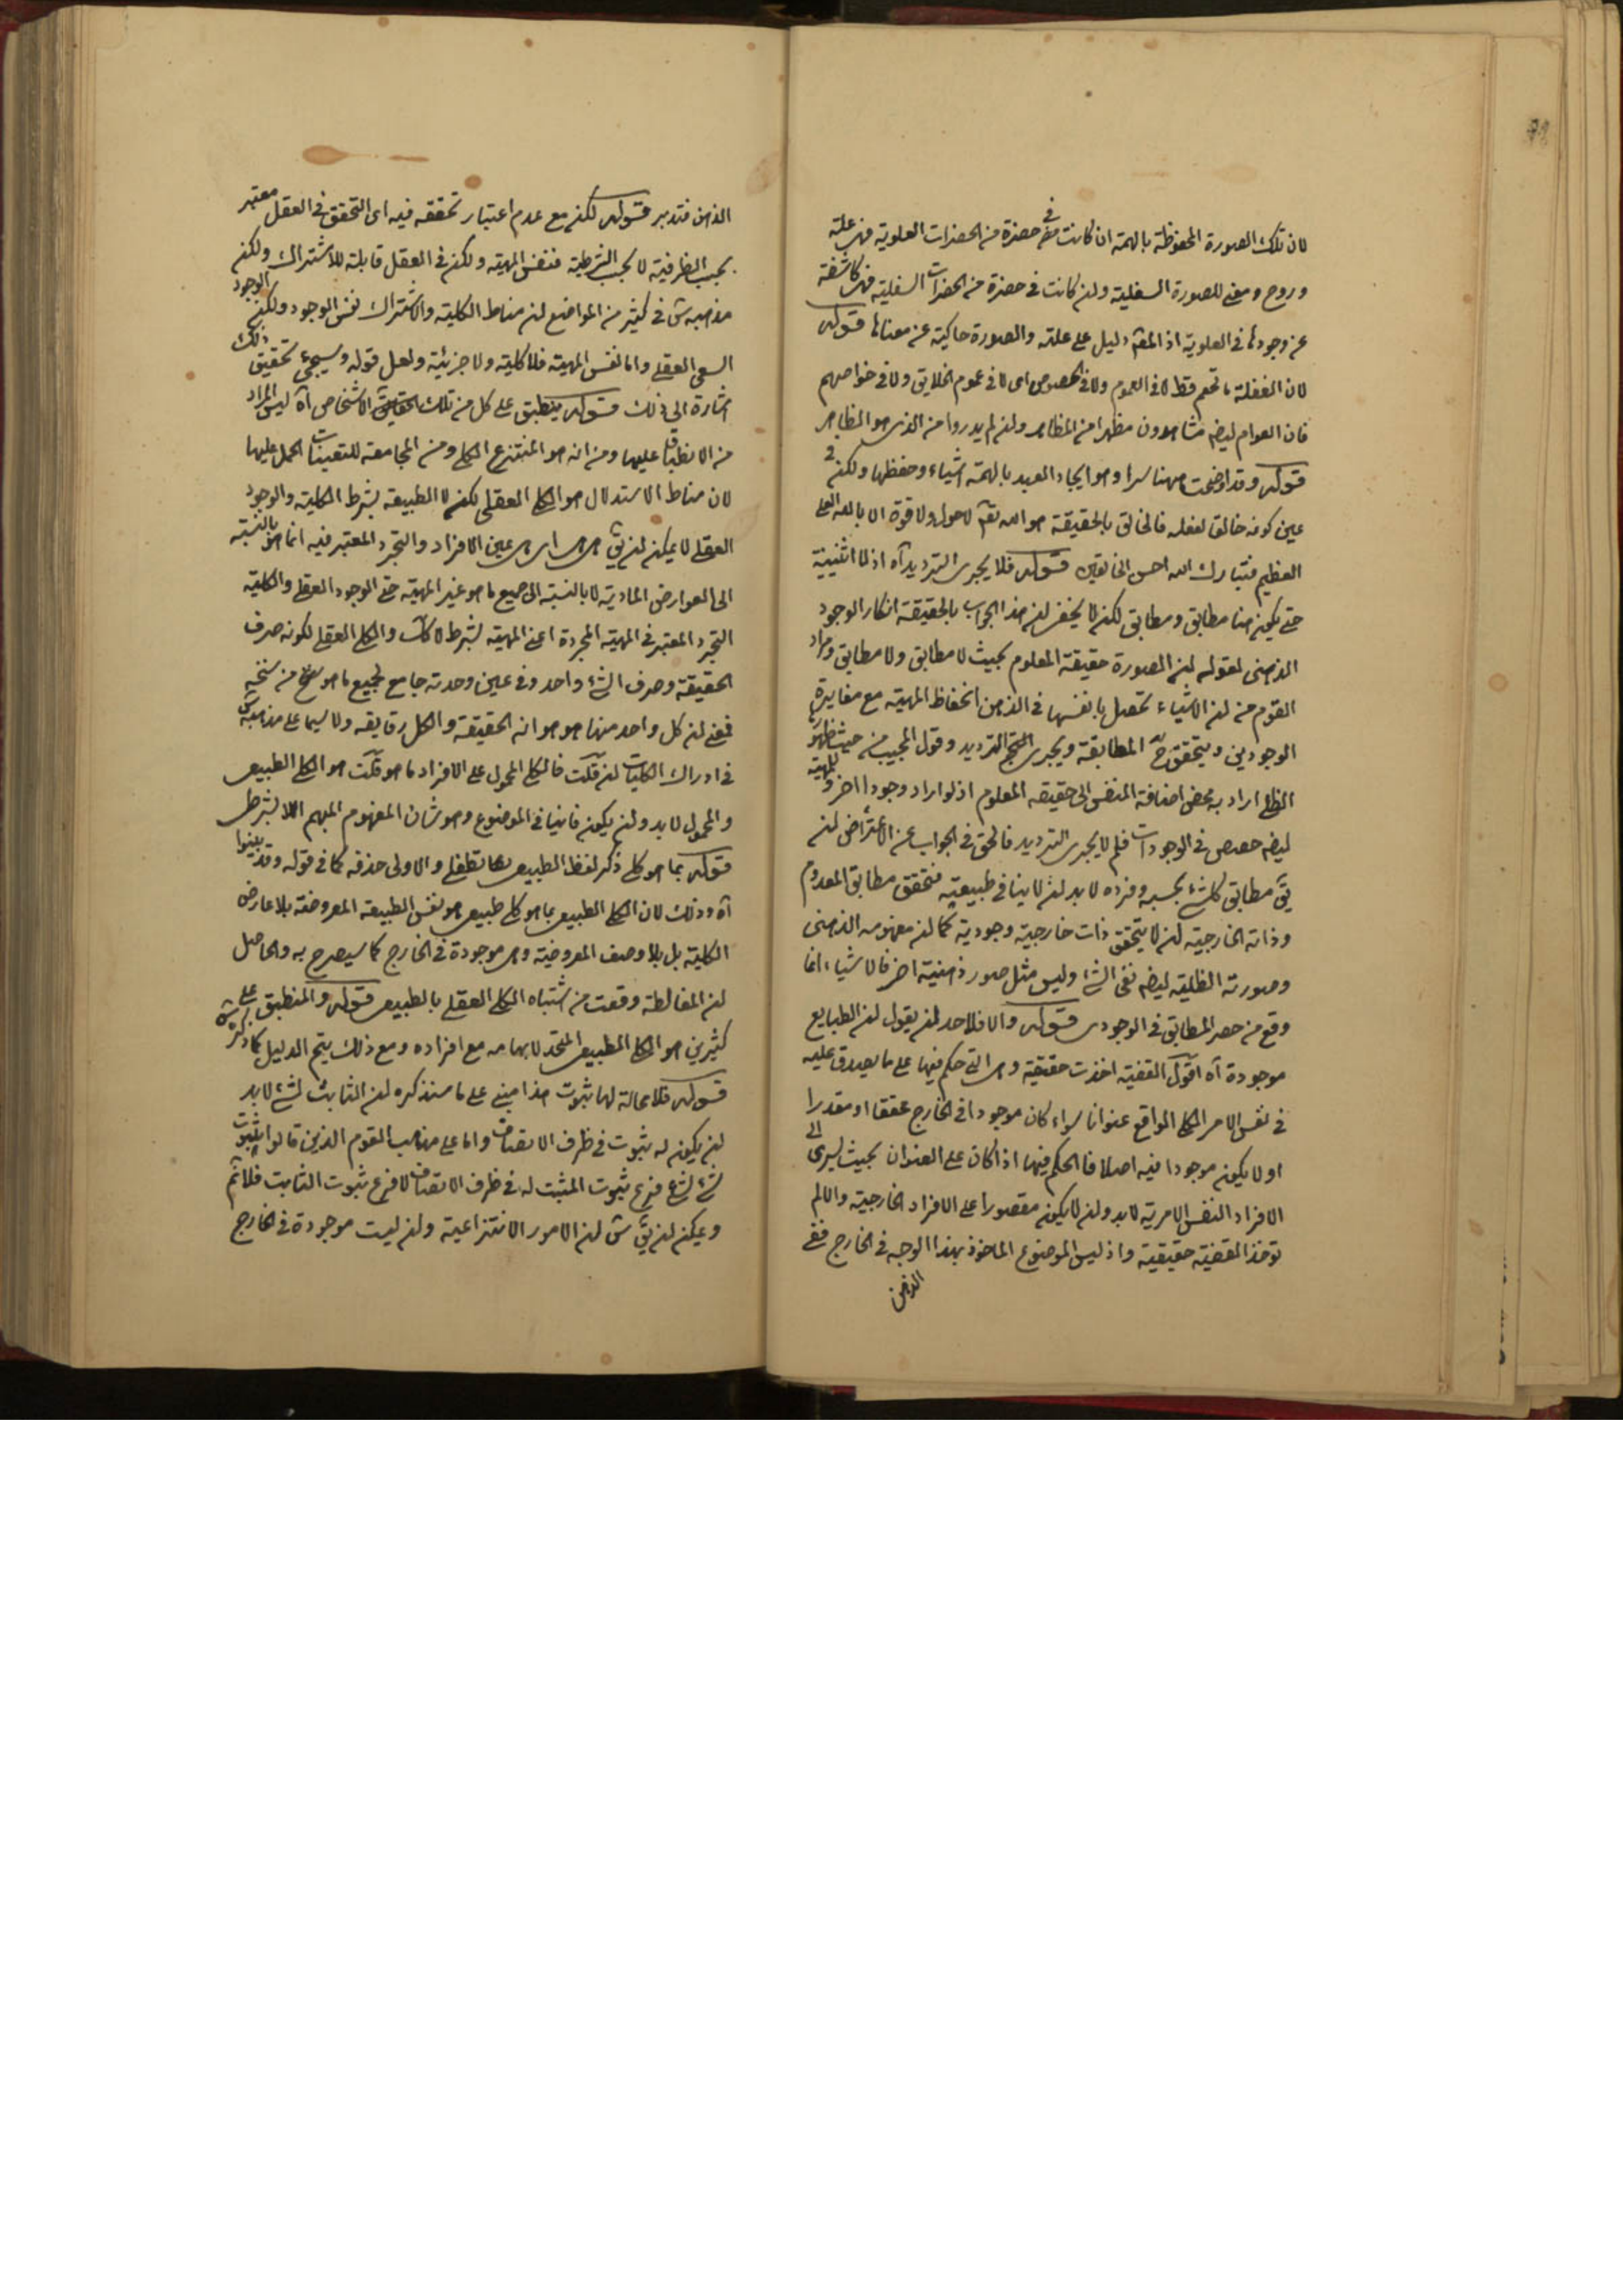 لان تلك الصورة المحفوظة بالهمة ان كانت في حضرة من الحضرات العلوية فهى علة
وروح ومعنى للصورة السفلية ولن كانت فى حضرة من الحضرات السفلية فهى كاشفة
عن وجودها فى العلوية اذ المعلول دليل على علته والصورة حاكية عن معناها قوله
لان الغفلة ما تعم قط لا فى العموم ولا فى الخصوص اى لا فى عموم الخلايق ولا فى خواصهم
فان العوام ايضا مشاهدون مظهرا من المظاهر ولن لم يدروا من الذى هو الظاهر
قوله وقد اوضحت ههنا سرا وهو ايجاد العبد بالهمة اشياء وحفظها ولكن فى
عين كونه خالقا لفعله فالخالق بالحقيقة هو الله تعالى لا حول ولا قوة الا بالله العلى
العظيم فتبارك الله احسن الخالقين قوله فلا يجرى الترديد آه اذ لا اثنينية
حتى يكون هنا مطابق ومطابق لكن لا يخفى لن هذا الجواب بالحقيقة انكار الوجود
الذهنى لقوله لن الصورة حقيقة المعلوم بحيث لا مطابق ولا مطابق ومراد
القوم من لن الاشياء تحصل بانفسها فى الذهن انحفاظ المهية مع مغايرة
الوجودين ويتحقق ح المطابقة ويجرى الترديد وقول المجيب من حيث ظهورها
الظلى اراد به محض اضافة النفس الى حقيقة المعلوم اذ لو اراد وجودا اخر للمهية
ايضا حصص فى الوجودات فلم لا يجرى الترديد فالحق فى الجواب عن الاعتراض لن
يق مطابق كل شئ بحسبه وفرده لا بد لن لا ينافى طبيعته فتحقق مطابق المعدوم
وذاته الخارجية لن لا يتحقق ذات خارجية وجودية كما لن مفهومه الذهنى
وصورته الظلية ايضا نفى الشئ وليس مثل صور ذهنية اخر فالاشياء انما
وقع من حصر المطابق فى الوجودى قوله والا فلاحد لن يقول لن الطبايع
موجودة آه اقول القضية اخذت حقيقية وهى التى حكم فيها على ما يصدق عليه
فى نفس الامر الكلى الواقع عنوانا سواء كان موجودا فى الخارج محققا او مقدرا
او لا يكون موجودا فيه اصلا فالحكم فيها اذا كان على العنوان بحيث يسرى الى
الافراد النفس الامرية لا بد ولن لا يكون مقصورا على الافراد الخارجية والا لم
توخذ القضية حقيقية واذ ليس الموضوع الماخوذ بهذا الوجه فى الخارج ففى
الذهن
الذهن فتدبر قوله لكن مع عدم اعتبار تحققه فيه اى التحقق فى العقل معتبر
بحسب الظرفية لا بحسب الشرطية فنفس المهية ولكن فى العقل قابلة للاشتراك ولكن
مذهبه ش فى كثير من المواضع لن مناط الكلية والاشتراك نفس الوجود ولكن الوجود
السعى العقلى واما نفس المهية فلا كلية ولا جزئية ولعل قوله وسيجئ تحقيق ذلك
اشارة الى ذلك قوله ينطبق على كل من تلك الاشخاص آه ليس المراد
من الانطباق عليها ومن انه هو المنتزع الكلى ومن المجامعة للتعينات الحمل عليها
لان مناط الاستدلال هو الكلى العقلى لكن لا الطبيعة بشرط الكلية والوجود
العقلى لا يمكن لن يق هى اى هى عين الافراد والتجرد المعتبر فيه انما هو بالنسبة
الى العوارض المادية لا بالنسبة الى جميع ما هو غير المهية حتى الوجود العقلى والكلية
التجرد المعتبر فى المهية المجردة اعنى المهية بشرط لا كك والكلى العقلى لكونه صرف
الحقيقة وصرف الشئ واحد وفى عين وحدته جامع لجميع ما هو سنخ من سنخه
فمعنى لن كل واحد منها هو هو انه الحقيقة والكل رقايقه ولا سيما على مذهبه ش
فى ادراك الكليات لن قلت فالكلى المحمول على الافراد ما هو قلت هو الكلى الطبيعى
والمحمول لا بد ولن يكون فانيا فى الموضوع وهو شان المفهوم المبهم اللا بشرط
قوله بما هو كلى ذكر لفظ الطبيعى هنا تطفلى والاولى حذفه كما فى قوله وقد بينوا
آه وذلك لان الكلى الطبيعى بما هو كلى طبيعى هو نفس الطبيعة المعروضة بلا عارض
الكلية بل بلا وصف المعروضية وهى موجودة فى الخارج كما سيصرح به والحاصل
لن المغالطة وقعت من اشتباه الكلى العقلى بالطبيعى قوله والمنطبق على
كثيرين هو الكلى الطبيعى المتحد لابهامه مع افراده ومع ذلك يتم الدليل كما ذكره ش
قوله فلا محالة لها ثبوت هذا مبنى على ما سنذكره لن الثابت لشئ لا بد
لن يكون له ثبوت فى ظرف الاتصاف واما على مذهب القوم الذين قالوا ثبوت
شئ لشئ فرع ثبوت المثبت له فى ظرف الاتصاف لا فرع ثبوت الثابت فلا يتم
ويمكن لن يق ش لن الامور الانتزاعية ولن ليست موجودة فى الخارج